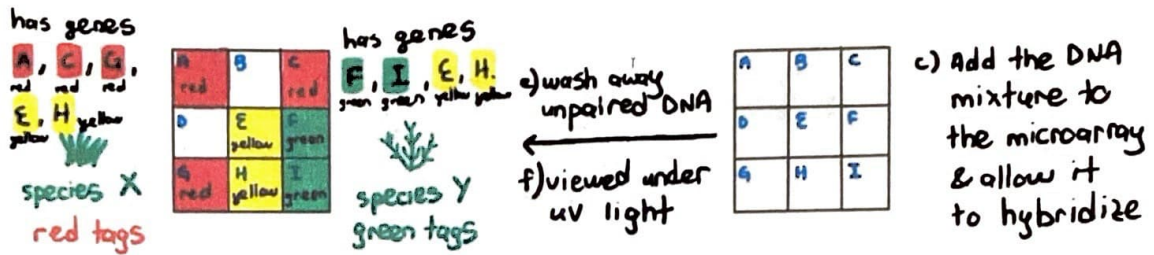 has genes
A, C, G,
red red red
E, H yellow
yellow
species X
red tags
A B C
red red
D E F
yellow green
G H I
red yellow green
has genes
F, I, E, H.
green green yellow yellow
species Y
green tags
e) wash away
unpaired DNA
f) viewed under
uv light
A B C
D E F
G H I
c) Add the DNA
mixture to
the microarray
& allow it
to hybridize